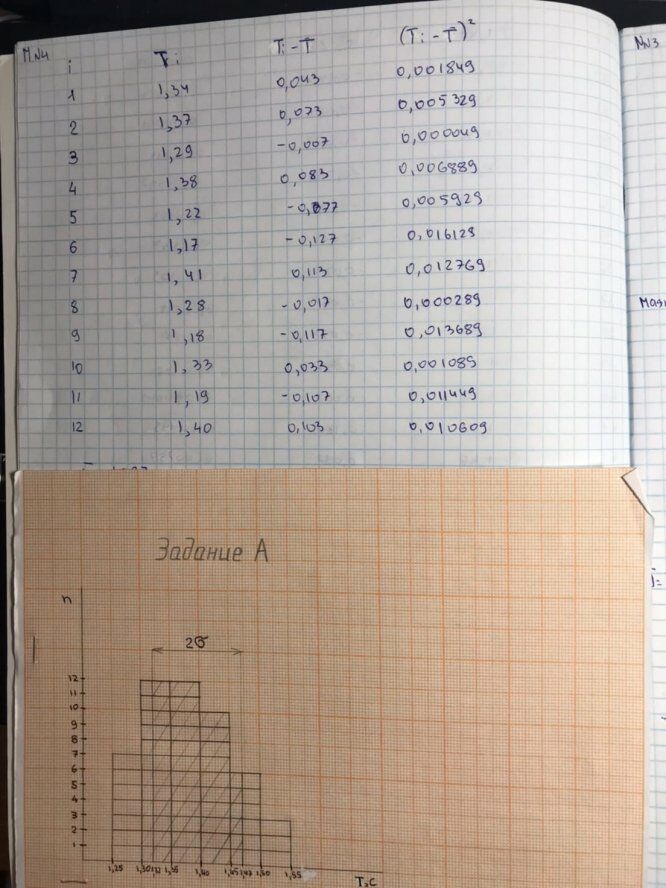 M.N4
i Ti Ti - T̄ (Ti - T̄)²
1 1,34 0,043 0,001849
2 1,37 0,073 0,005329
3 1,29 -0,007 0,000049
4 1,38 0,083 0,006889
5 1,22 -0,077 0,005929
6 1,17 -0,127 0,016129
7 1,41 0,113 0,012769
8 1,28 -0,017 0,000289
9 1,18 -0,117 0,013689
10 1,33 0,033 0,001089
11 1,19 -0,107 0,011449
12 1,40 0,103 0,010609
N3
Задание А
n
2σ
12
11
10
9
8
7
6
5
4
3
2
1
1,25 1,30 1,32 1,35 1,40 1,45 1,47 1,50 1,55
T,c